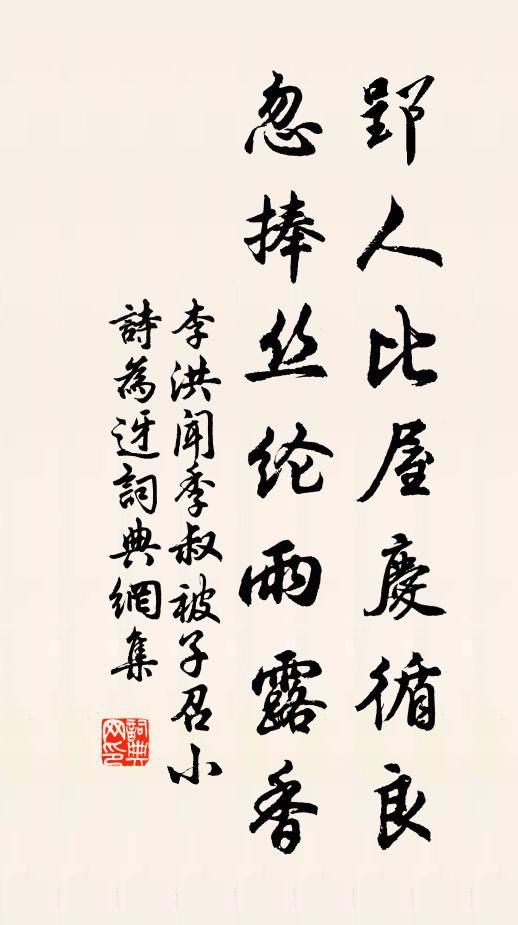 郢人比屋慶循良
忽捧丝纶雨露香
李洪聞季叔被子召小
詩為迓詞典網集
詞典
网印